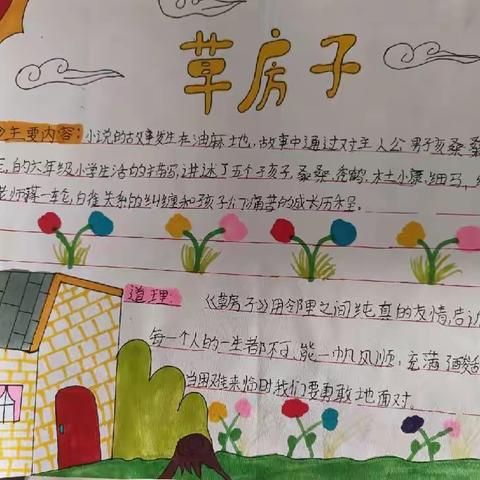 草房子
主要内容:小说的故事发生在油麻地,故事中通过对主人公男子亥桑桑
的六年级小学生活的描写,讲述了五个子孩子,桑桑、秃鹤、杜小康、细马,
老师蒋一轮,白雀关系的纠缠和孩子们痛苦的成长历
道理:《草房子》用邻里之间纯真的友情,告
每一个人的一生都不可能一帆风顺,充满酸
当困难来临时我们要勇敢地面对.